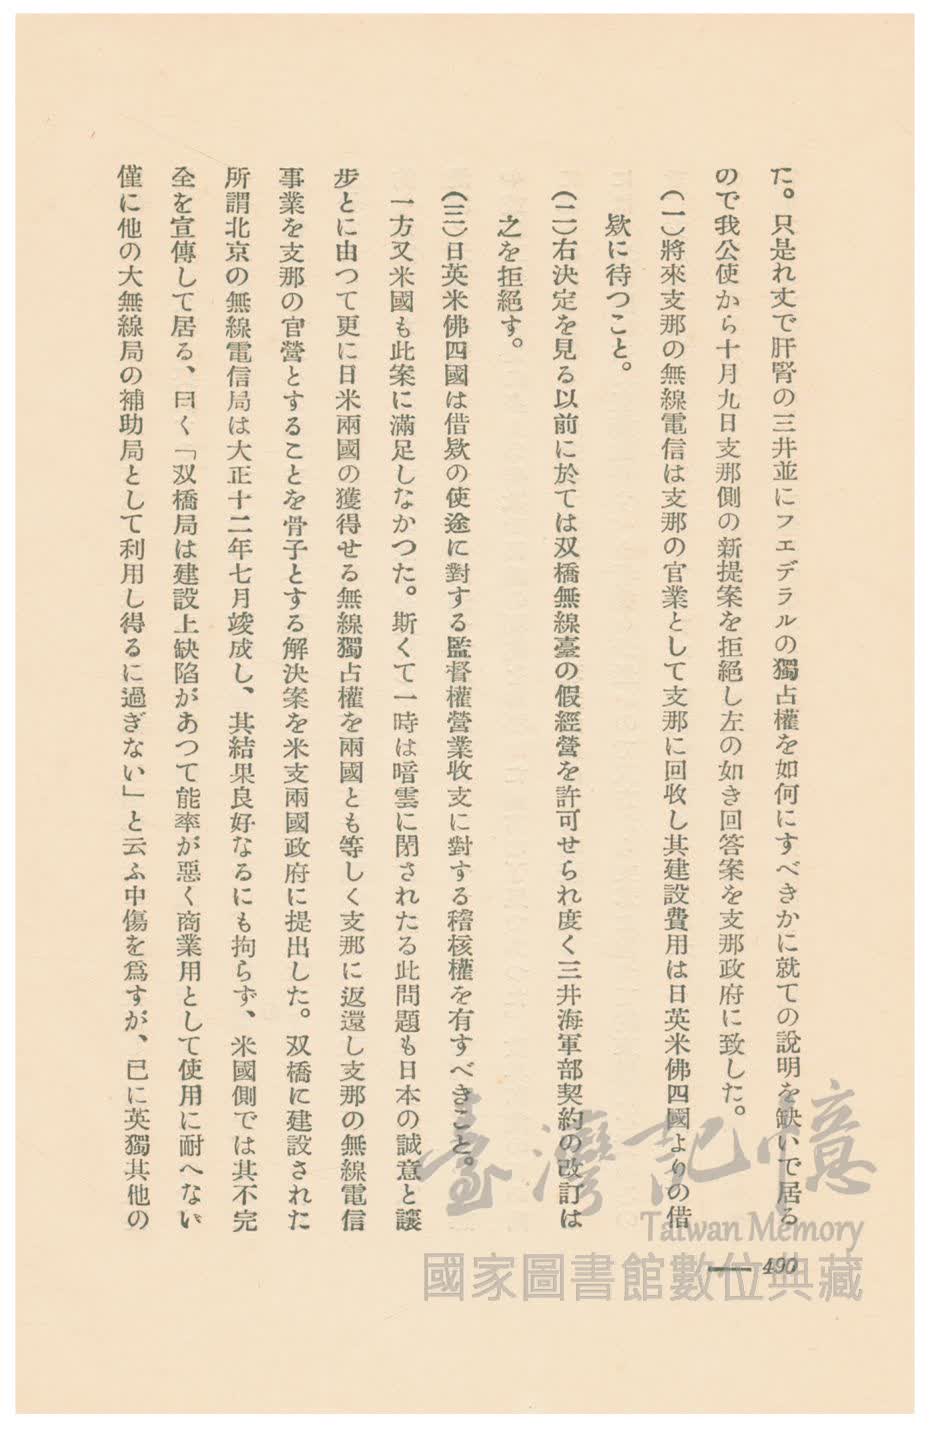 た。只是れ丈で肝腎の三井並にフェデラルの獨占權を如何にすべきかに就ての說明を缺いで居る
ので我公使から十月九日支那側の新提案を拒絕し左の如き回答案を支那政府に致した。
(一)將來支那の無線電信は支那の官業として支那に回收し其建設費用は日英米佛四國よりの借
欵に待つこと。
(二)右決定を見る以前に於ては双橋無線臺の假經營を許可せられ度く三井海軍部契約の改訂は
之を拒絕す。
(三)日英米佛四國は借欵の使途に對する監督權營業收支に對する稽核權を有すべきこと。
一方又米國も此案に滿足しなかつた。斯くて一時は暗雲に閉されたる此問題も日本の誠意と讓
步とに由つて更に日米兩國の獲得せる無線獨占權を兩國とも等しく支那に返還し支那の無線電信
事業を支那の官營とすることを骨子とする解決案を米支兩國政府に提出した。双橋に建設された
所謂北京の無線電信局は大正十二年七月竣成し、其結果良好なるにも拘らず、米國側では其不完
全を宣傳して居る、曰く「双橋局は建設上缺陷があつて能率が惡く商業用として使用に耐へない
僅に他の大無線局の補助局として利用し得るに過ぎない」と云ふ中傷を爲すが、已に英獨其他の
490
臺灣記憶
Taiwan Memory
國家圖書館數位典藏